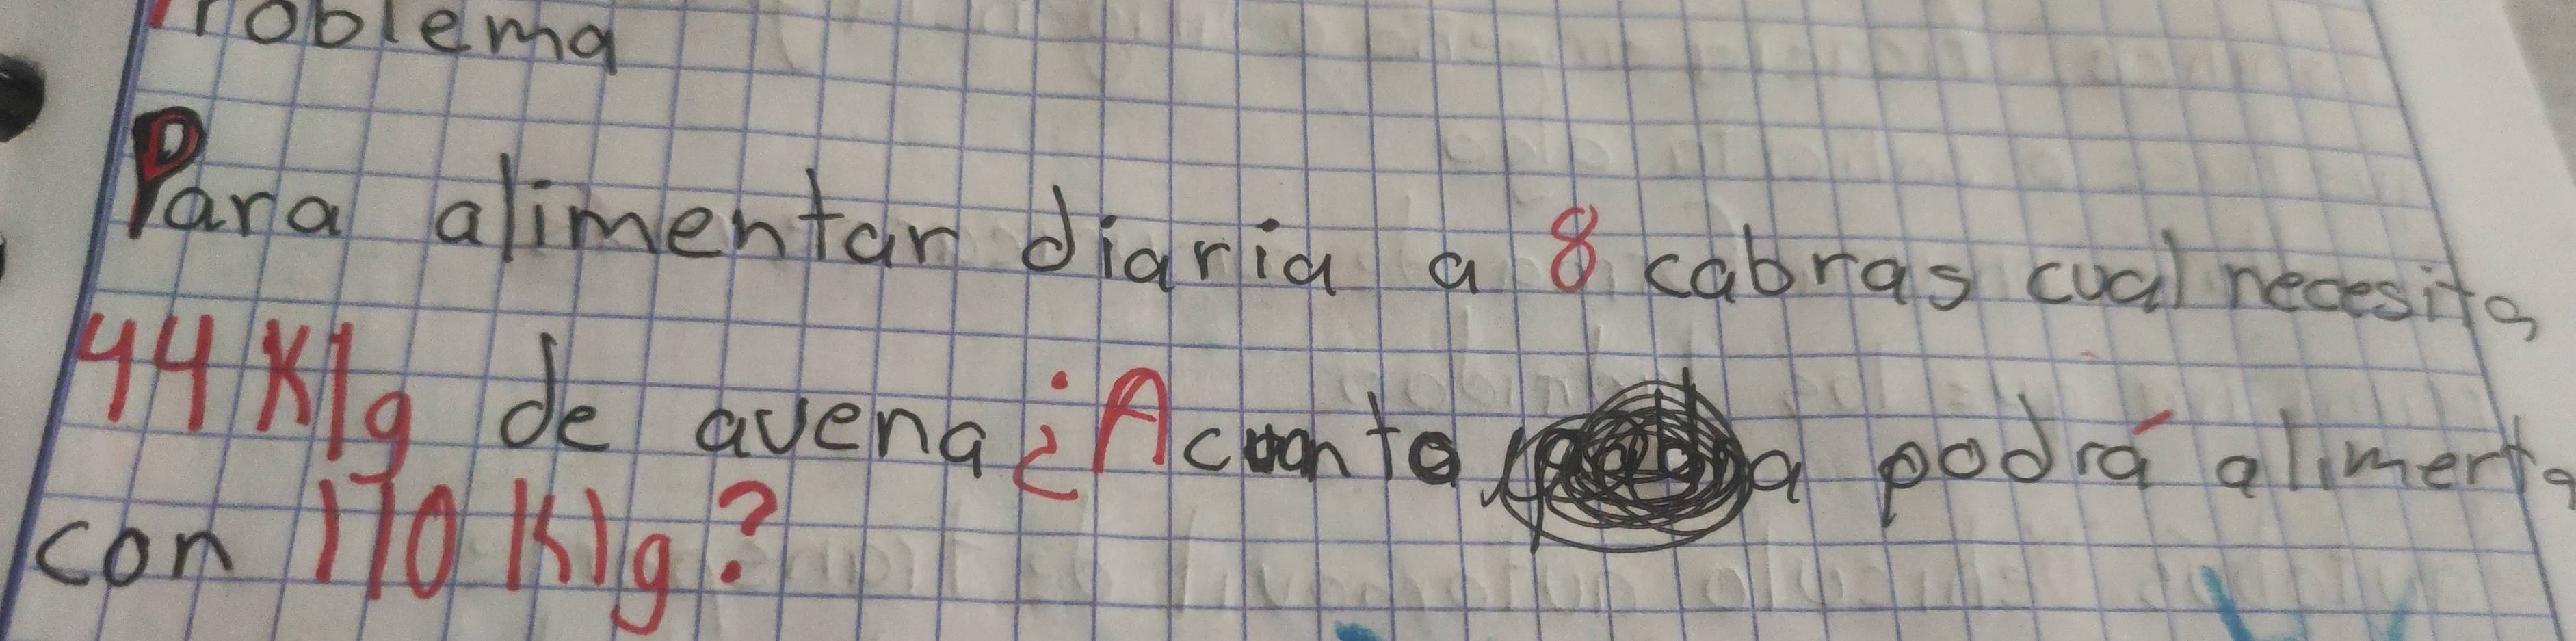 roblema
Para alimentar diaria a 8 cabras cual necesita
44 Klg de avena ¿A cuanta podrá alimenta
con 110 Klg?